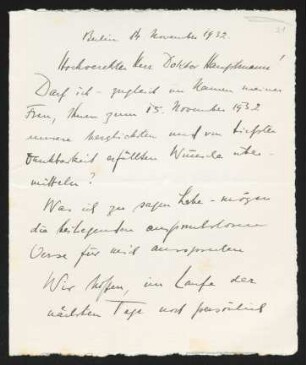 Berlin 14. November 1932.
Hochverehrter Herr Doktor Hauptmann!
Darf ich – zugleich im Namen meiner
Frau, Ihnen zum 15. November 1932
unsere herzlichsten und von tiefster
Dankbarkeit erfüllten Wünsche über-
mitteln?
Was ich zu sagen habe – mögen
die beiliegenden anspruchslosen
Verse für mich aussprechen
Wir hoffen, im Laufe der
nächsten Tage noch persönlich